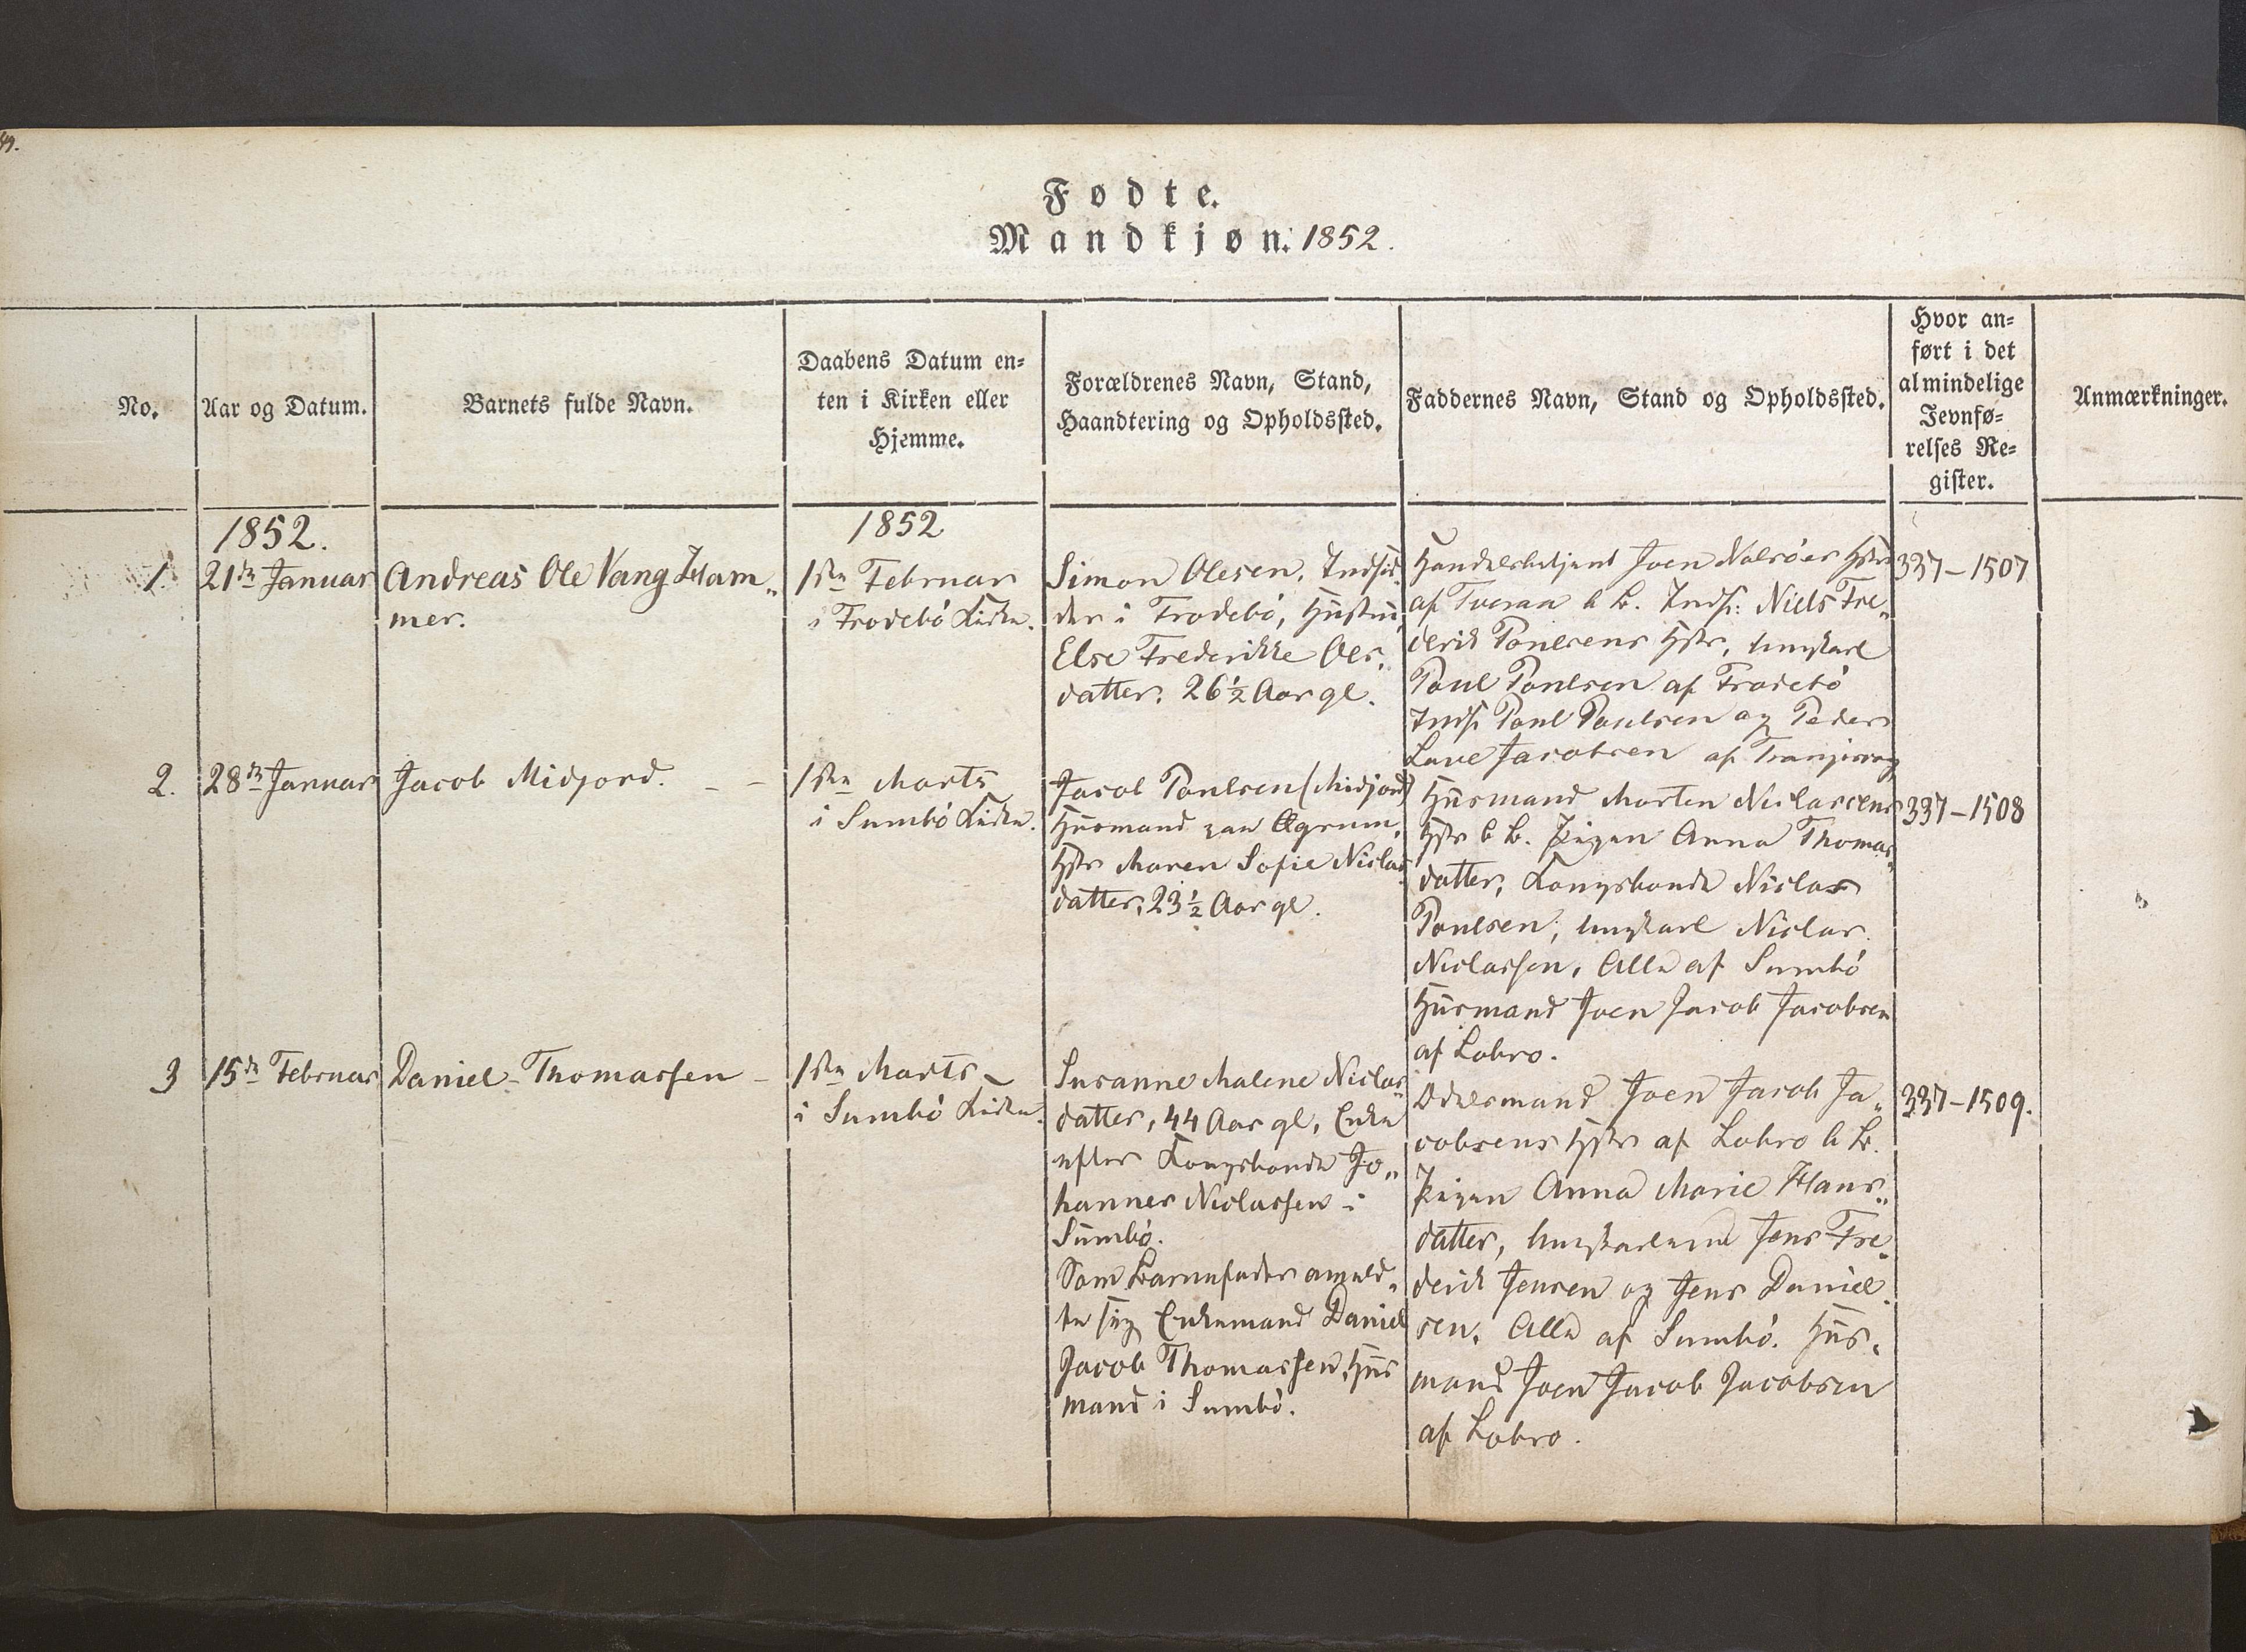 Fødte.
Mandkjøn. 1852.
No.
Aar og Datum.
Barnets fulde Navn.
Daabens Datum en-
ten i Kirken eller
Hjemme.
Forældrenes Navn, Stand,
Haandtering og Opholdssted.
Faddernes Navn, Stand og Opholdssted.
Hvor an-
ført i det
almindelige
Jevnfø-
relses Re-
gister.
Anmærkninger.
1852.
1852
1.
21de Januar
Andreas Ole Vang Ham„
mer.
1ste Februar
i Frodebö Kirke.
Simon Olesen, Indsid-
der i Frodebö, Hustru
Else Frederikke Ols„
datter, 26½ Aar gl.
Handelsbetjent Joen Nolsöes Hstr
af Tveraa b B. Inds: Niels Fre„
derik Poulsens Hstr, Ungkarl
Poul Poulsen af Frodebö
Inds: Poul Poulsen og Peder
Lave Jacobsen af Trangisvaag
337-1507
2.
28de Januar
Jacob Midjord.
1ste Marts
i Sumbö Kirke.
Jacob Poulsen (Midjord)
Husmand paa Øgrum,
Hstr Maren Sofie Niclas
datter, 23½ Aar gl.
Husmand Morten Niclassens
Hstr b B. Pigen Anna Thomas„
datter, Kongsbonde Niclas
Poulsen, Ungkarl Niclas
Niclassen, Alle af Sumbö
Husmand Joen Jacob Jacobsen
af Lobro.
337-1508
3
15de Februar
Daniel Thomassen
1ste Marts
i Sumbö Kirke.
Susanne Malene Niclas„
datter, 44 Aar gl, Enke
efter Kongsbonde Jo„
hannes Niclassen i
Sumbö.
Som Barnefader angeld„
te sig Enkemand Daniel
Jacob Thomassen, Hus
mand i Sumbö.
Odelsmand Joen Jacob Ja„
cobsens Hstr af Lobro b B.
Pigen Anna Marie Hans„
datter, Ungkarlene Jens Fre„
derik Jensen og Jens Daniel
sen, Alle af Sumbö. Hus„
mand Joen Jacob Jacobsen
af Lobro.
337-1509.